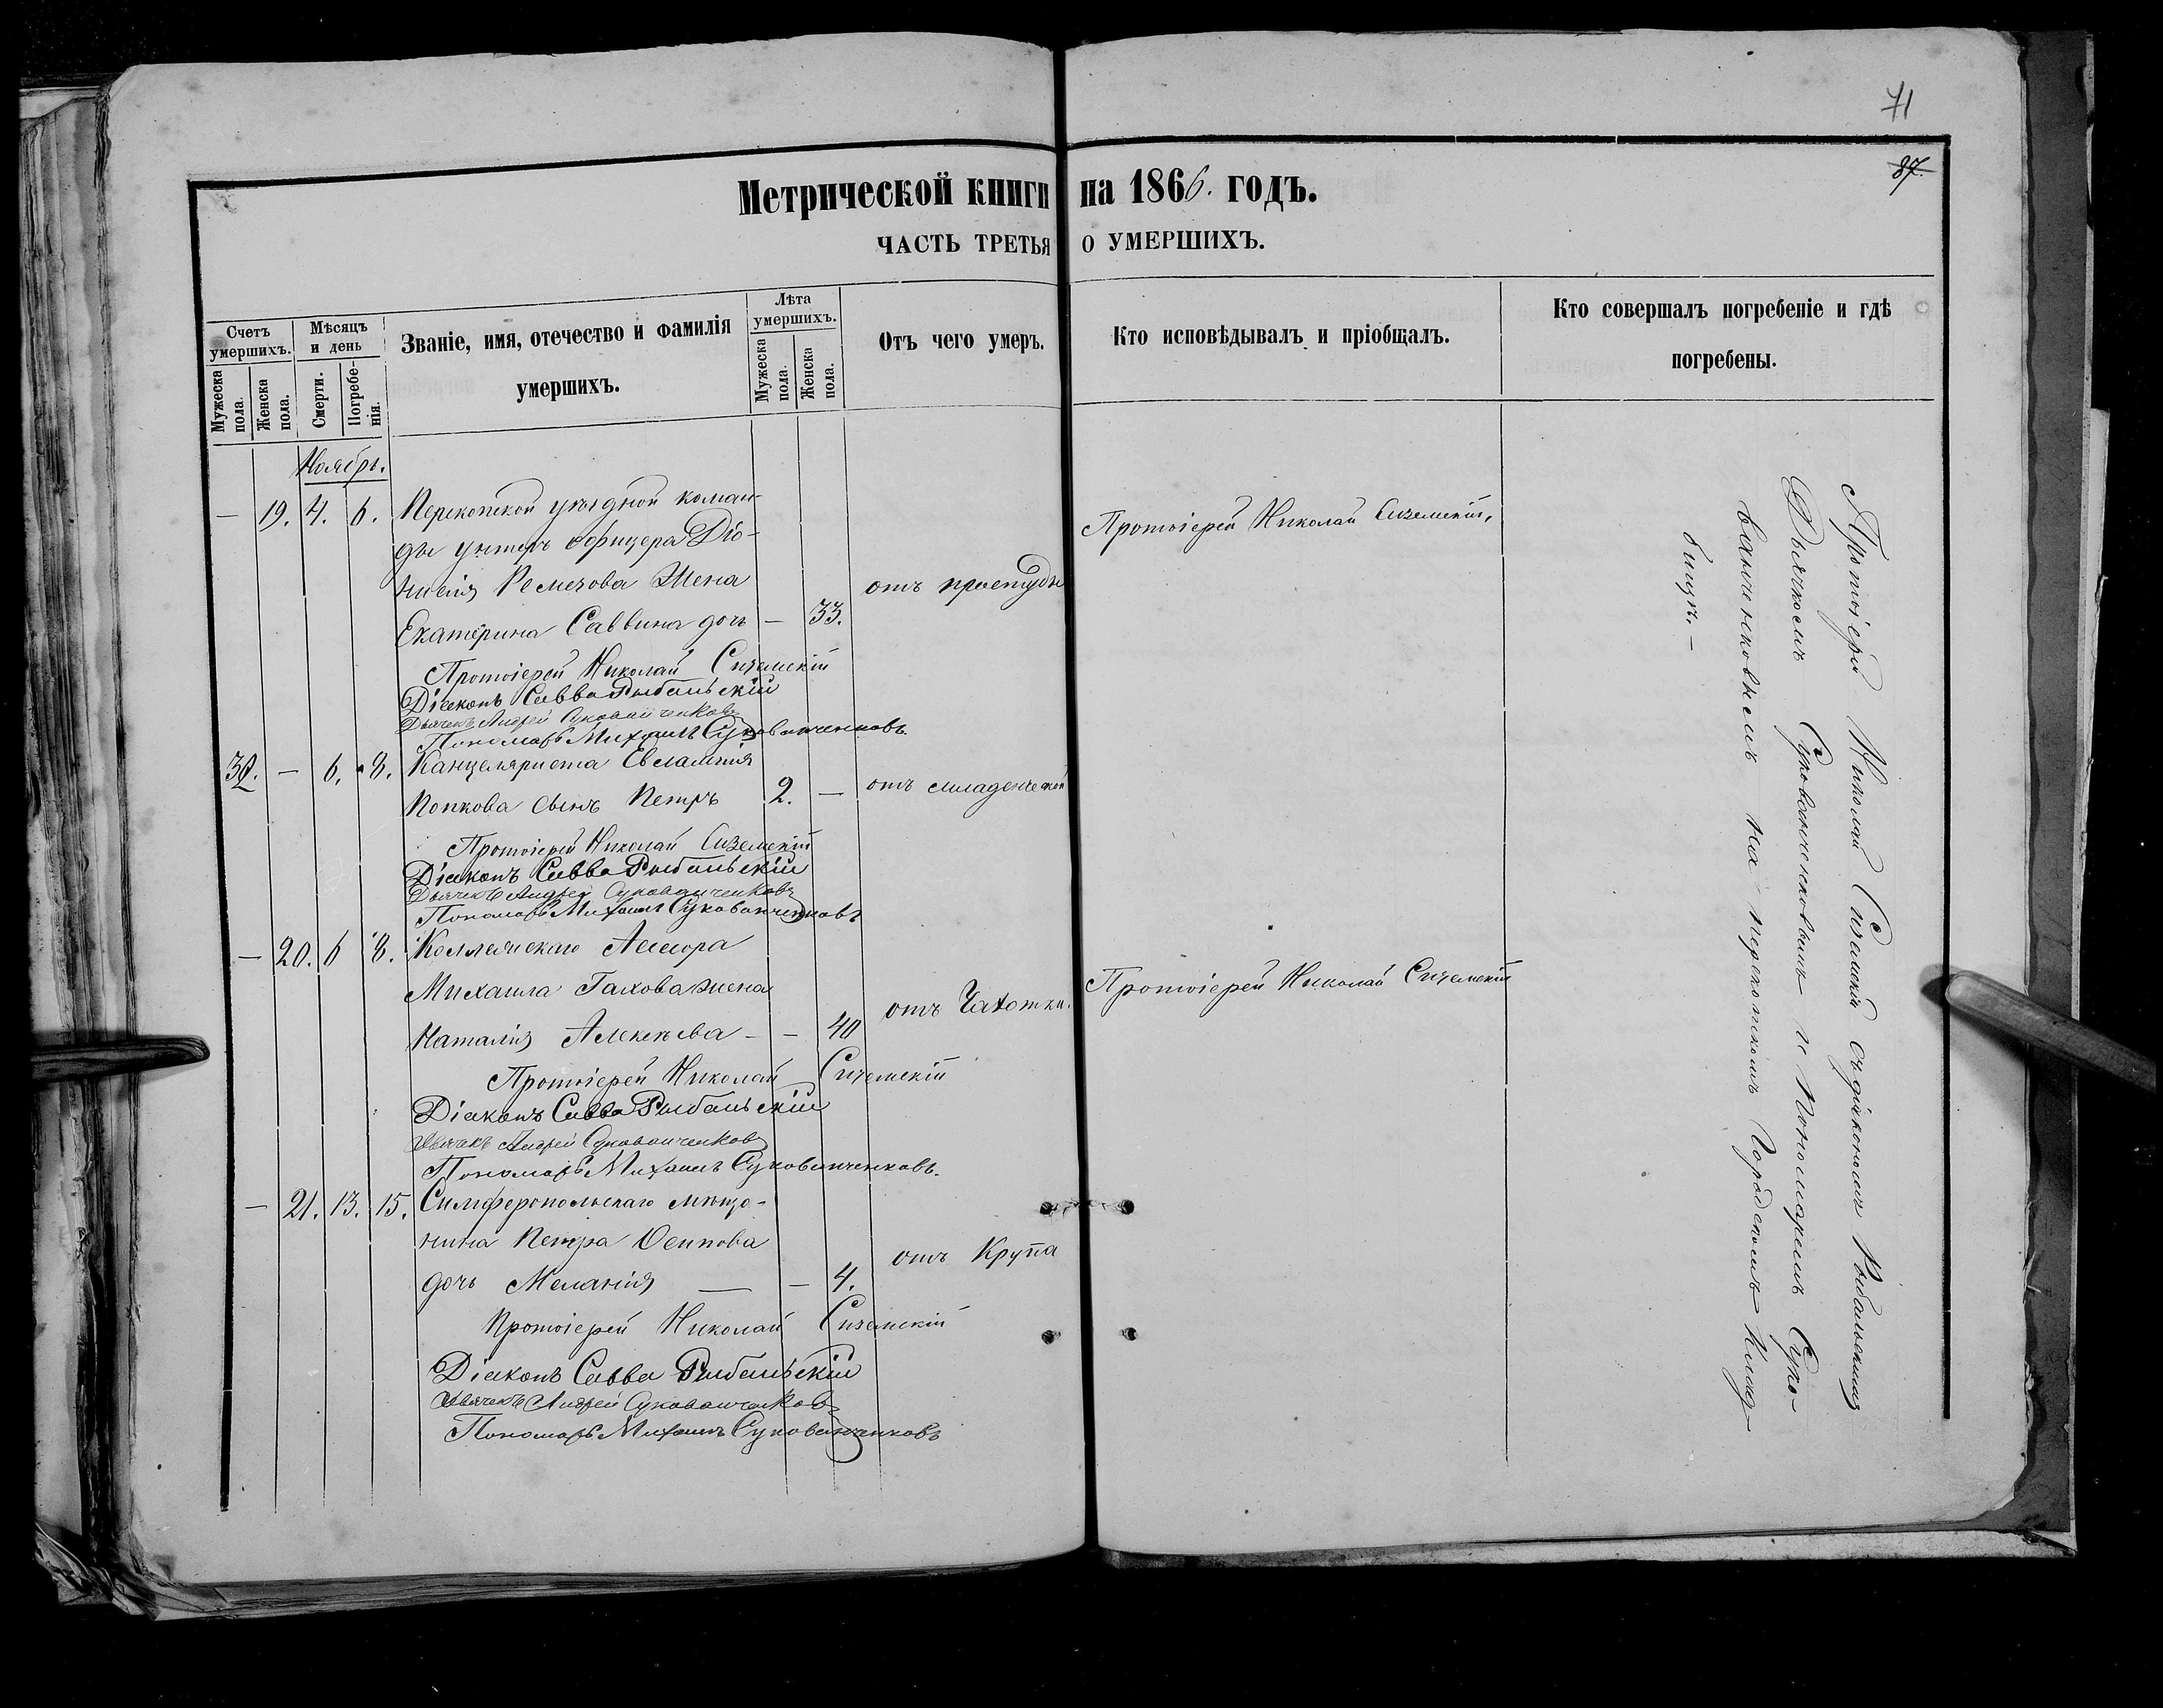 71
87.
Метрической книги на 1866. годъ.
ЧАСТЬ ТРЕТЬЯ О УМЕРШИХЪ.
Счетъ умершихъ.
Мужеска пола.
Женска пола.
Мѣсяцъ и день
Смерти.
Погребе-
нія.
Званіе, имя, отечество и фамилія
умершихъ.
Лѣта умершихъ.
Мужеска пола.
Женска пола.
Отъ чего умеръ.
Кто исповѣдывалъ и пріобщалъ.
Кто совершалъ погребеніе и гдѣ
погребены.
Ноябрь.
— 19. 4. 6. Перекопской уѣздной коман-
ды унтеръ офицера Діо-
нисія Ремезова жена
Екатерина Саввина дочь — 33. отъ простуды
Протоіерей Николай Сиземскій,
Протоіерей Николай Сиземскій
Діаконъ Савва Рыбальскій
Дьячекъ Андрей Сукованченковъ
Пономарь Михаилъ Сукованченковъ.
32. — 6. 8. Канцеляриста Евлампія
Попкова сынъ Петръ 2. — отъ младенческой
Протоіерей Николай Сиземскій
Діаконъ Савва Рыбальскій
Дьячекъ Андрей Сукованченковъ
Пономарь Михаилъ Сукованченковъ
— 20. 6 8. Коллежскаго Ассесора
Михаила Гахова жена
Наталія Алексѣева — — 40 отъ Чахотки.
Протоіерей Николай Сиземскій
Протоіерей Николай Сиземскій
Діаконъ Савва Рыбальскій
Дьячекъ Андрей Сукованченковъ
Пономарь Михаилъ Сукованченковъ.
— 21. 13. 15. Симферопольскаго мѣща-
нина Петра Осипова
дочь Меланія — — 4. отъ Крупа
Протоіерей Николай Сиземскій
Діаконъ Савва Рыбальскій
Дьячекъ Андрей Сукованченковъ
Пономарь Михаилъ Сукованченковъ
Протоіерей Николай Сиземскій съ діакономъ Рыбальскимъ
Дьячкомъ Сукованченковымъ и Пономаремъ Суко-
ванченковымъ на перекопскомъ Городскомъ Клад-
бищѣ. —